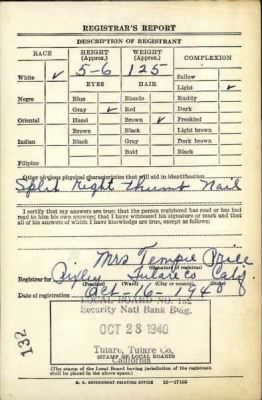 REGISTRAR'S REPORT
DESCRIPTION OF REGISTRANT
RACE HEIGHT (Approx.) WEIGHT (Approx.) COMPLEXION
White ✓ 5-6 125 Sallow
EYES HAIR Light ✓
Negro Blue Blonde Ruddy
Gray ✓ Red Dark
Oriental Hazel Brown ✓ Freckled
Brown Black Light brown
Indian Black Gray Dark brown
Bald Black
Filipino
Other obvious physical characteristics that will aid in identification
Split Right thumb Nail
I certify that my answers are true; that the person registered has read or has had
read to him his own answers; that I have witnessed his signature or mark and that
all of his answers of which I have knowledge are true, except as follows:
Mrs Tempie Price
(Signature of registrar)
Registrar for Pixley Tulare Co Calif.
(Precinct) (Ward) (City or county) (State)
Date of registration Oct-16-1940
LOCAL BOARD NO. 132
Security Natl Bank Bldg.
OCT 28 1940
132
Tulare, Tulare Co.
(STAMP OF LOCAL BOARD)
California
(The stamp of the Local Board having jurisdiction of the registrant
shall be placed in the above space.)
U. S. GOVERNMENT PRINTING OFFICE 16-17105